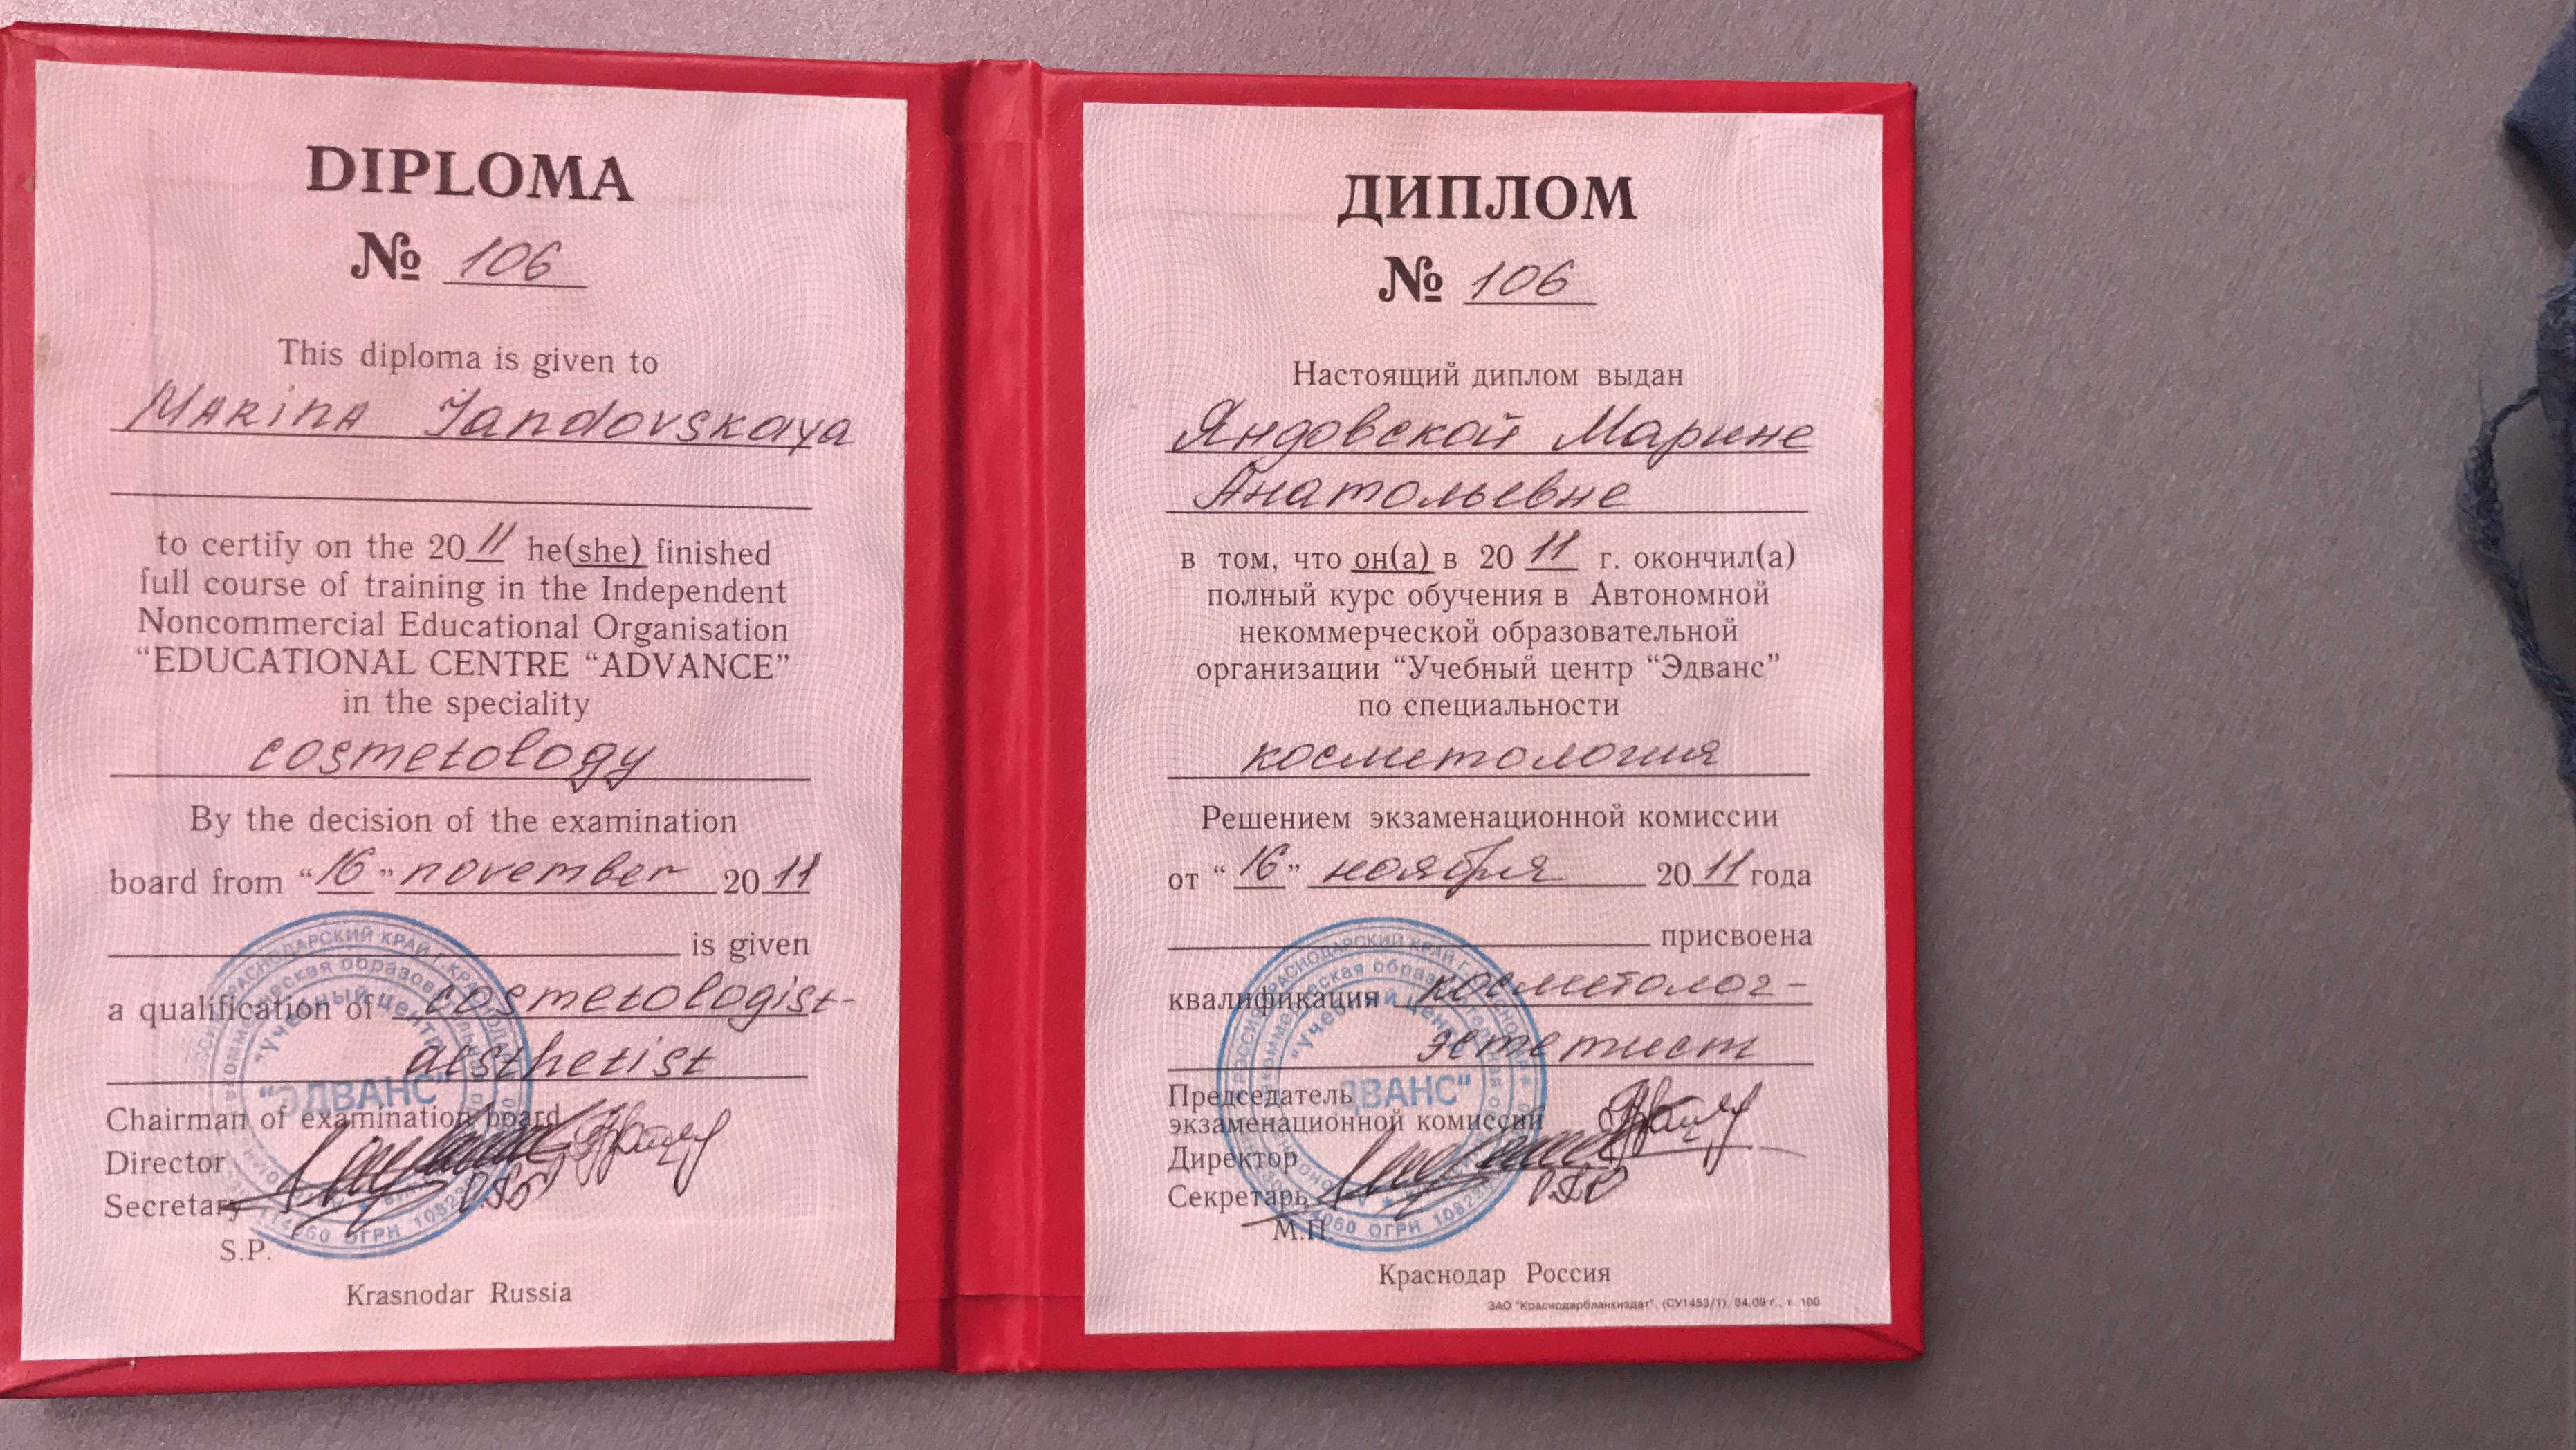 DIPLOMA
№ 106
This diploma is given to
Marina Jandovskaya
to certify on the 20 11 he(she) finished
full course of training in the Independent
Noncommercial Educational Organisation
"EDUCATIONAL CENTRE "ADVANCE"
in the speciality
cosmetology
By the decision of the examination
board from "16" november 20 11
is given
a qualification of cosmetologist-
aesthetist
Chairman of examination board
Director
Secretary
S.P.
Krasnodar Russia
"Учебный центр
"ЭДВАНС"
ДИПЛОМ
№ 106
Настоящий диплом выдан
Яндовской Марине
Анатольевне
в том, что он(а) в 20 11 г. окончил(а)
полный курс обучения в Автономной
некоммерческой образовательной
организации "Учебный центр "Эдванс"
по специальности
косметология
Решением экзаменационной комиссии
от "16" ноября 20 11 года
присвоена
квалификация косметолог-
эстетист
Председатель
экзаменационной комиссии
Директор
Секретарь
М.П.
Краснодар Россия
ЗАО "Краснодарбланкиздат", (СУ1453/1), 04.09 г., т. 100